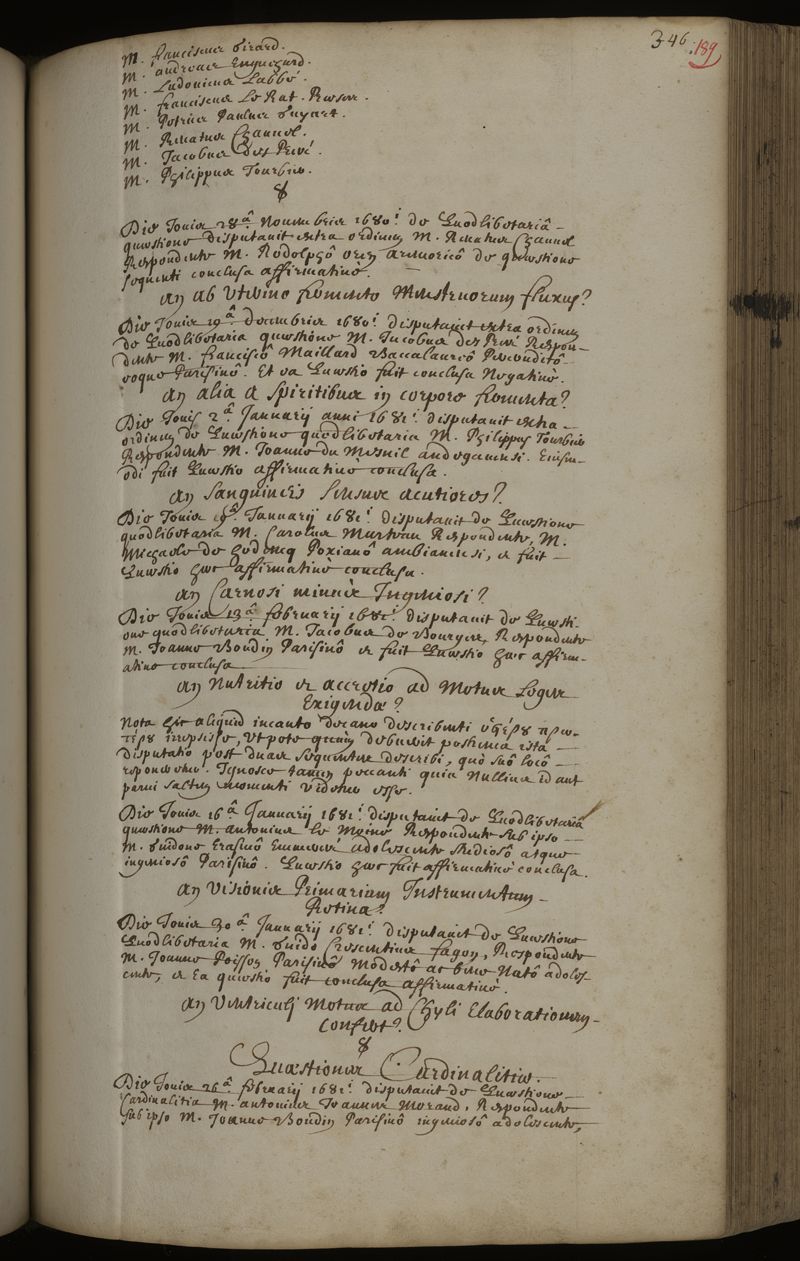 346 189
M. Franciscus Girard.
M. Andreas Enguehard.
M. Ludovicus Labbé.
M. Franciscus Le Rat.
M. Petrus Paulus Guyart.
M. Renatus Chauvel.
M. Jacobus des Prez.
M. Philippus Tourbier.
Die Jovis 28ª Novembris 1680i. de Quodlibetariâ
quæstione disputavit extra ordinem M. Renatus Chauvel
Respondente M. Rodolphô armoricô de quæstione
sequenti conclusa affirmativè.
An ab Uterino fermento Menstruorum fluxus?
Die Jovis 19ª Decembris 1680i. disputavit extra ordinem
de Quodlibetaria quæstione M. Jacobus des Prez Respon-
dente M. Franciscô Maillard Baccalaureô
eoque Parisinô. Et ea Quæstio fuit conclusa Negativè.
An alia a spiritibus in corpore fermenta?
Die Jovis 2ª Januarij anni 1681i. disputavit extra
ordinem de Quæstione quodlibetaria M. Philippus Tourbier
Respondente M. Joanne du Mesnil andegavensi. Eiusm-
odi fuit Quæstio affirmativè conclusa.
An sanguineis sensus acutiores?
Die Jovis Januarij 1681i. disputavit de Quæstione
quodlibetaria M. Carolus Marteau Respondente, M.
Michaele de ambianensi, & fuit
Quæstio hæc affirmativè conclusa.
An Carnosi minus Ingeniosi?
Die Jovis 13ª februarij 1681i. disputavit de Quæsti-
one quodlibetaria M. Jacobus de Bourges, Respondente
M. Joanne Boudin Parisinô & fuit Quæstio hæc affirm-
ative conclusa
An Nutritio & accretio ad Motus Leges
Exigendæ?
Nota hîc aliquid incauto decano describenti ὕστερον πρω-
τερον irrepsisse, Ut pote quum debuerit postrema ista
disputatio post duas sequentes describi, quæ suo loco
Ignosce tamen peccanti quia Nullius id aut
parvi saltem momenti videtur esse.
Die Jovis 16ª Januarij 1681i. disputavit de Quodlibetariâ
quæstione M. Antonius le Moine Respondente sub ipso
M. Guidone Erasmô Emmerez adolescente studiosô atque
ingeniosô Parisinô. Quæstio hæc fuit affirmativè conclusa.
An Visionis Primarium Instrumentum
Retina?
Die Jovis 30ª Januarij 1681i. disputavit de Quæstione
Quodlibetaria M. Guido Crescentius Fagon, Respondente
M. Joanne Poisson Parisinô Modestô ac bene Natô adoles-
cente, & Ea quæstio fuit conclusa affirmativè.
An Ventriculj Motus ad Chyli Elaborationem
Confert?
Quæstiones Cardinalitiæ.
Die Jovis 26ª februarij 1681i. disputavit de Quæstione
Cardinalitia M. Antonius Joannes Morand, Respondente
sub ipso M. Joanne Boudin Parisinô ingeniosô adolescente,